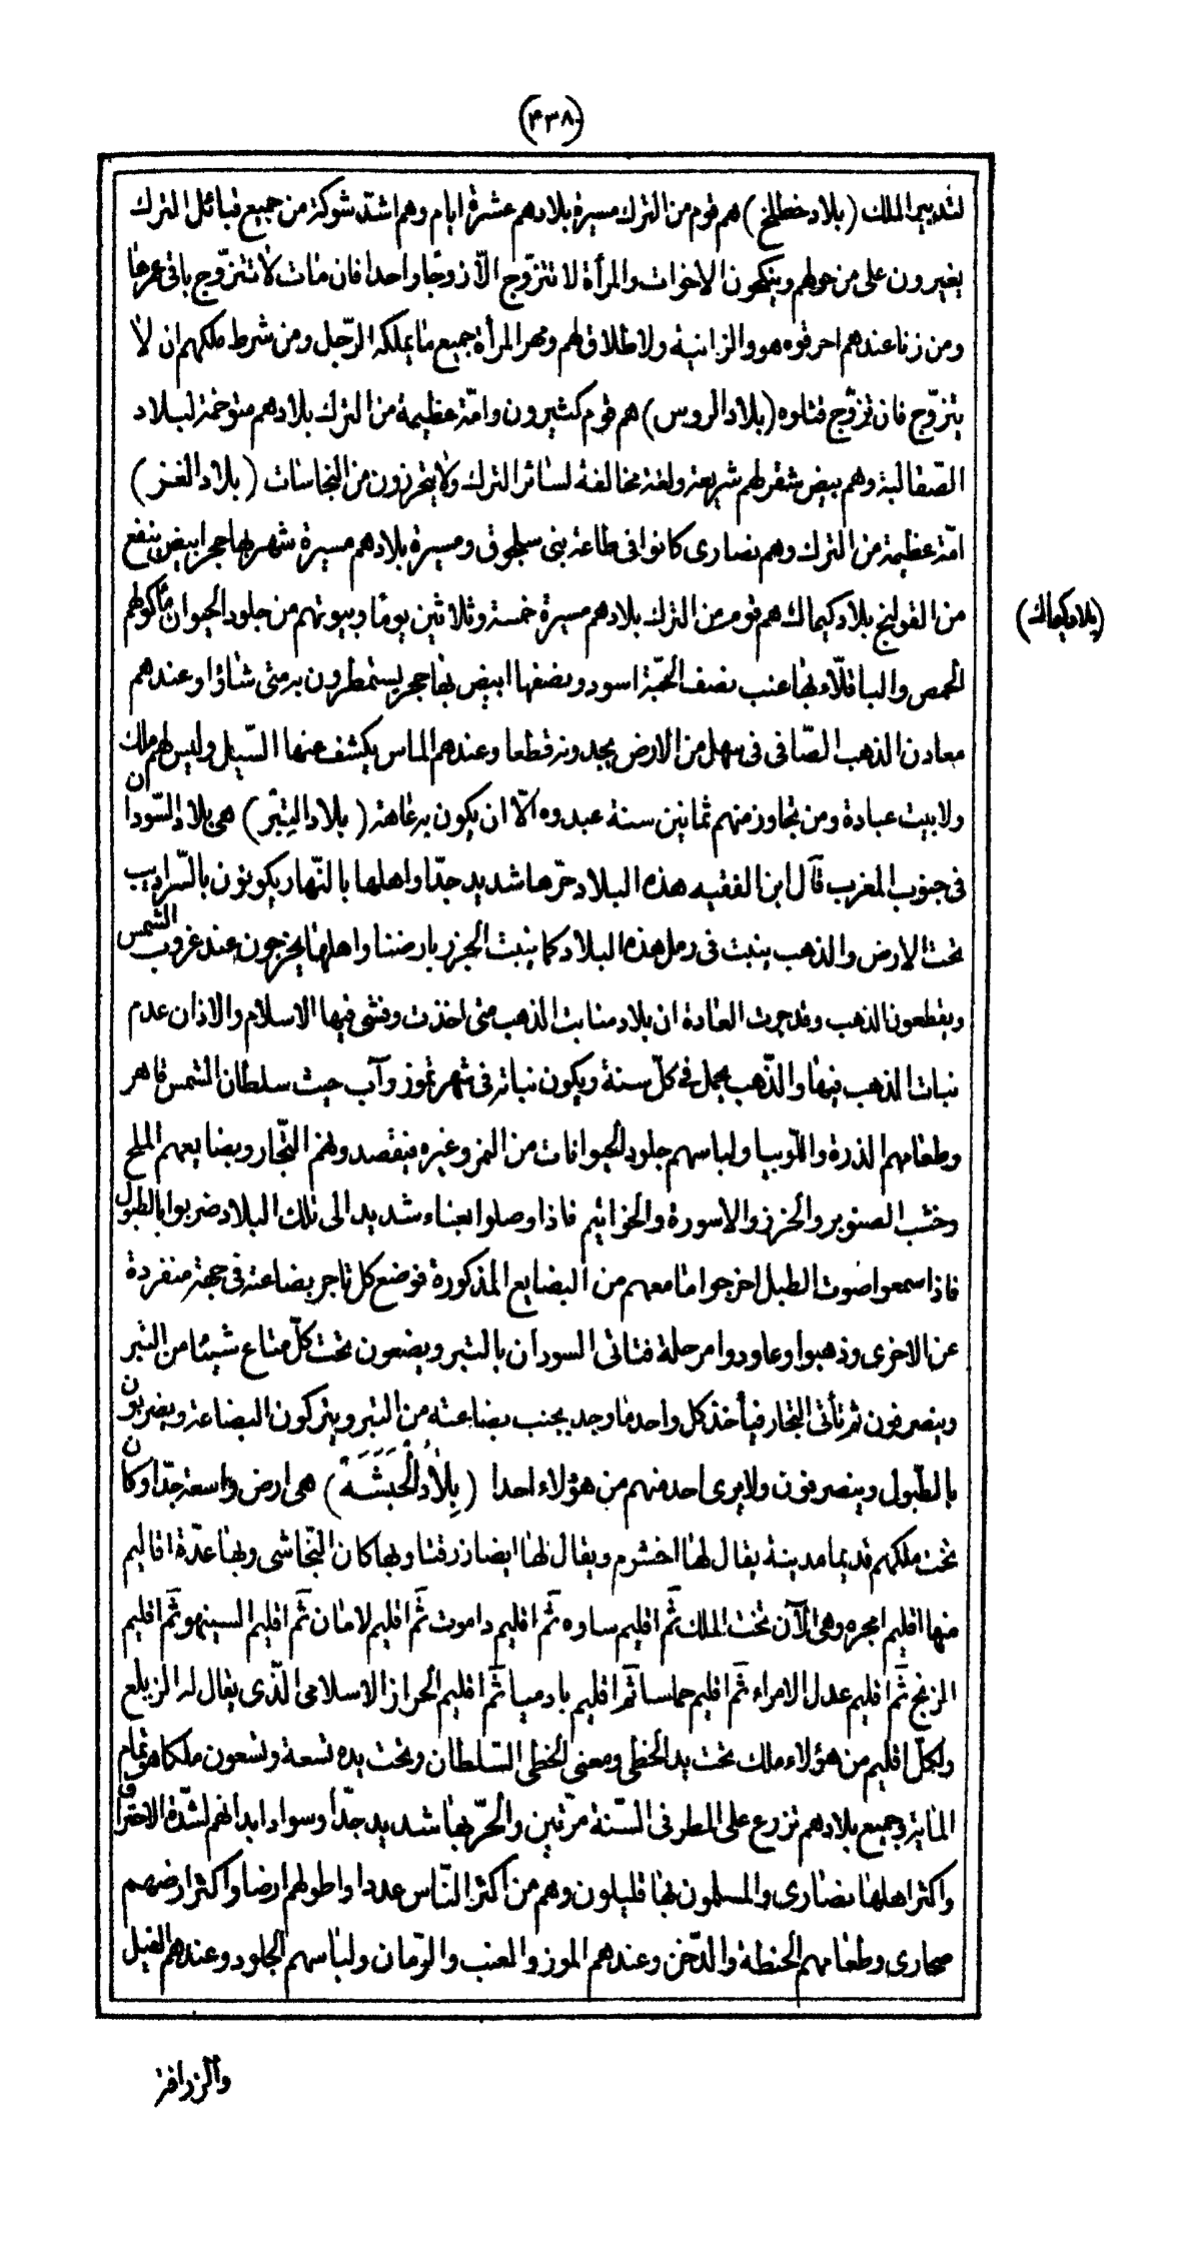 (۴۳۸)
لتدبير الملك (بلاد خطلخ) هم قوم من الترك مسيرة بلادهم عشرة ايام وهم اشدّ شوكة من جميع قبائل الترك
يغيرون على من حولهم وينكحون الاخوات والمرأة لا تتزوّج الّا زوجًا واحدا فان مات لا تتزوّج باقى عمرها
ومن زنا عندهم احرقوه هو والزانية ولا طلاق لهم ومهر المرأة جميع ما يملكه الرّجل ومن شرط ملكهم ان لا
يتزوّج فان تزوّج قتلوه (بلاد الروس) هم قوم كثيرون وامّة عظيمة من الترك بلادهم متوخمة لبلاد
الصّقالبة وهم بيض شقر لهم شريعة ولغة مخالفة لسائر الترك ولا يتحرزون من النجاسات (بلاد الغز)
امّة عظيمة من الترك وهم نصارى كانوا فى طاعة بنى سلجوق ومسيرة بلادهم مسيرة شهر بها حجر ابيض ينفع
من القولنج بلاد كيماك هم قوم من الترك بلادهم مسيرة خمسة وثلاثين يومًا وبيوتهم من جلود الحيوان مأكولهم
(بلاد كيماك)
الحمص والباقلّاء بها عنب نصف الحبّة اسود ونصفها ابيض بها حجر يستمطرون به متى شاؤا وعندهم
معادن الذهب الصّافى فى سهل من الارض يجدونه قطعا وعندهم الماس يكشف عنها السّيل وليس لهم ملك
ولا بيت عبادة ومن تجاوز منهم ثمانين سنة عبدوه الّا ان يكون به عاهة (بلاد التِبْر) هى بلاد السّودان
فى جنوب المغرب قال ابن الفقيه هذه البلاد حرّها شديد جدّا واهلها بالنّهار يكونون بالسّراديب
تحت الارض والذهب ينبت فى رمل هذه البلاد كما ينبت الجزر بارضنا واهلها يخرجون عند غروب الشمس
ويقطعون الذهب وقد جرت العادة ان بلاد منابت الذهب متى اخذت وفشى فيها الاسلام والاذان عدم
نبات الذهب فيها والذّهب يحمل فى كلّ سنة ويكون نباته فى شهر تموز وآب حيث سلطان الشمس قاهر
وطعامهم الذرة واللّوبيا ولباسهم جلود الحيوانات من النمر وغيره فيقصدونهم التّجار وبضايعهم الملح
وخشب الصنوبر والخرز والاسورة والخواتيم فاذا وصلوا بعناء شديد الى تلك البلاد ضربوا بالطبول
فاذا سمعوا صوت الطبل اخرجوا ما معهم من البضايع المذكورة فوضع كل تاجر بضاعته فى جهة منفردة
عن الاخرى وذهبوا وعاودوا مرحلة فتاتى السودان بالتبر ويضعون تحت كلّ متاع شيئا من التبر
وينصرفون ثم تأتى التجار فيأخذ كل واحد ما وجد بجنب بضاعته من التبر ويتركون البضاعة ويضربون
بالطّبول وينصرفون ولا يرى احد منهم من هؤلاء احدا (بِلَادُ الْحَبَشَةَ) هى ارض واسعة جدّا وكان
تخت ملكهم قديما مدينة يقال لها اخشرم ويقال لها ايضا زرفتا وبها كان النّجاشى وبها عدّة اقاليم
منها اقليم امجره وهى الآن تخت الملك ثمّ اقليم ساوه ثمّ اقليم داموت ثمّ اقليم لامان ثمّ اقليم السينهو ثمّ اقليم
الزنج ثمّ اقليم عدل الامراء ثمّ اقليم حماسا ثمّ اقليم بادميا ثمّ اقليم الحراز الاسلامى الّذى يقال له الزيلع
ولكلّ اقليم من هؤلاء ملك تحت يد الحطى ومعنى الحطى السّلطان وتحت يده تسعة وتسعون ملكا هو تمام
المائة وجميع بلادهم تزرع على المطر فى السّنة مرّتين والحرّ بها شديد جدّا وسواد ابدانهم لشدّة الاحتراق
واكثر اهلها نصارى والمسلمون بها قليلون وهم من اكثر النّاس عددا واطولهم ارضا واكثر ارضهم
صحارى وطعامهم الحنطة والدّخن وعندهم الموز والعنب والرّمان ولباسهم الجلود وعندهم الفيل
والزرافة